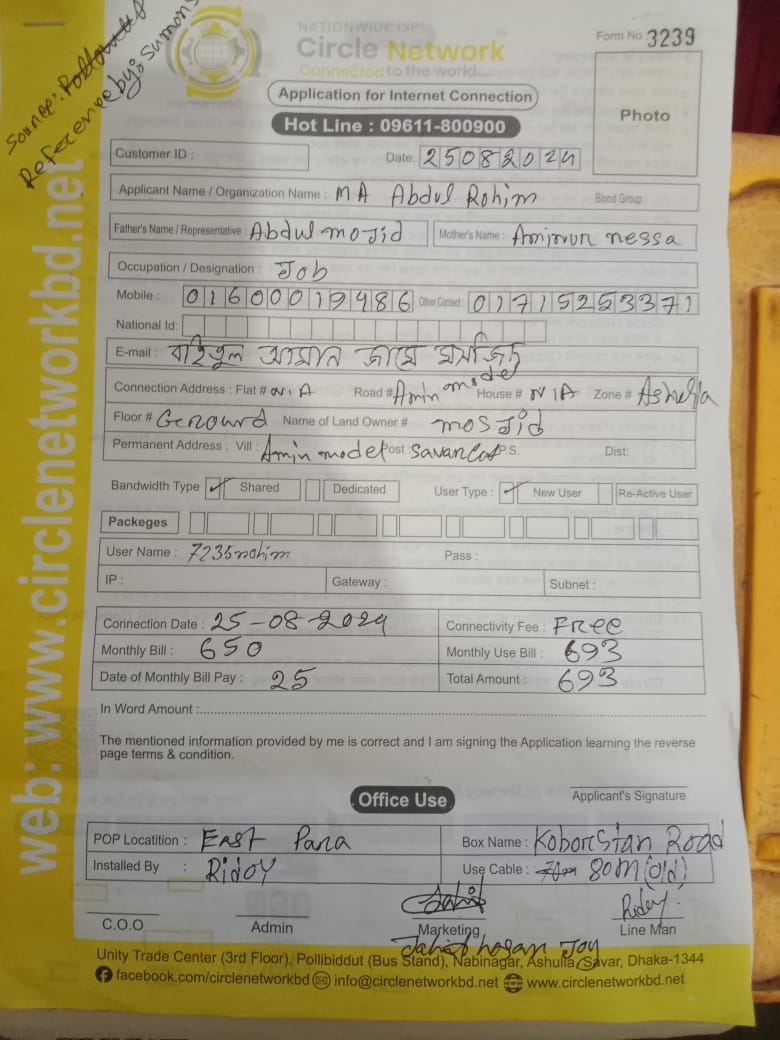 Source:
Reference by: Sumon
NATIONWIDE ISP
Circle Network
Connected to the world
Form No 3239
Application for Internet Connection
Photo
Hot Line : 09611-800900
Customer ID :
Date: 25082024
Applicant Name / Organization Name : MA Abdul Rohim Blood Group :
Father's Name / Representative : Abdul moJid Mother's Name : Amirun nessa
Occupation / Designation : Job
Mobile : 01600019486 Other Contact : 01715253371
National Id:
E-mail : বাইতুল আমান জামে মসজিদ
Connection Address : Flat # N/A Road # Amin model House # N/A Zone # Ashulia
Floor # Geround Name of Land Owner # mosJid
Permanent Address : Vill : Amin model Post : Savar P.S. Dist:
Bandwidth Type ✓ Shared Dedicated User Type : ✓ New User Re-Active User
Packeges
User Name : 7235rohim Pass :
IP : Gateway : Subnet :
Connection Date : 25-08-2024 Connectivity Fee : FRee
Monthly Bill : 650 Monthly Use Bill : 693
Date of Monthly Bill Pay : 25 Total Amount : 693
In Word Amount :
The mentioned information provided by me is correct and I am signing the Application learning the reverse
page terms & condition.
Applicant's Signature
Office Use
POP Locatition : East Para Box Name : Road
Installed By : RidoY Use Cable : 80m (old)
Ridoy
C.O.O Admin Marketing Line Man
Jahid hosan Joy
Unity Trade Center (3rd Floor), Pollibiddut (Bus Stand), Nabinagar, Ashulia, Savar, Dhaka-1344
facebook.com/circlenetworkbd info@circlenetworkbd.net www.circlenetworkbd.net
web: www.circlenetworkbd.net